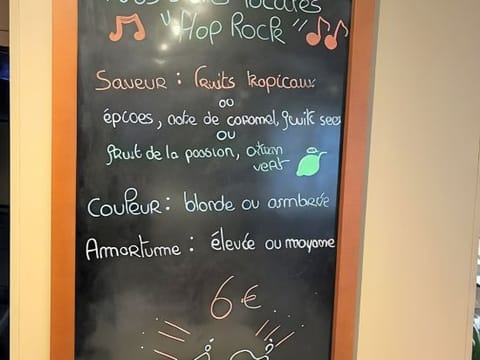 locales
"Hop Rock"
Saveur : fruits tropicaux
ou
épices, note de caramel, fruits secs
ou
fruit de la passion, citron
vert
Couleur : blonde ou ambrée
Amertume : élevée ou moyenne
6€